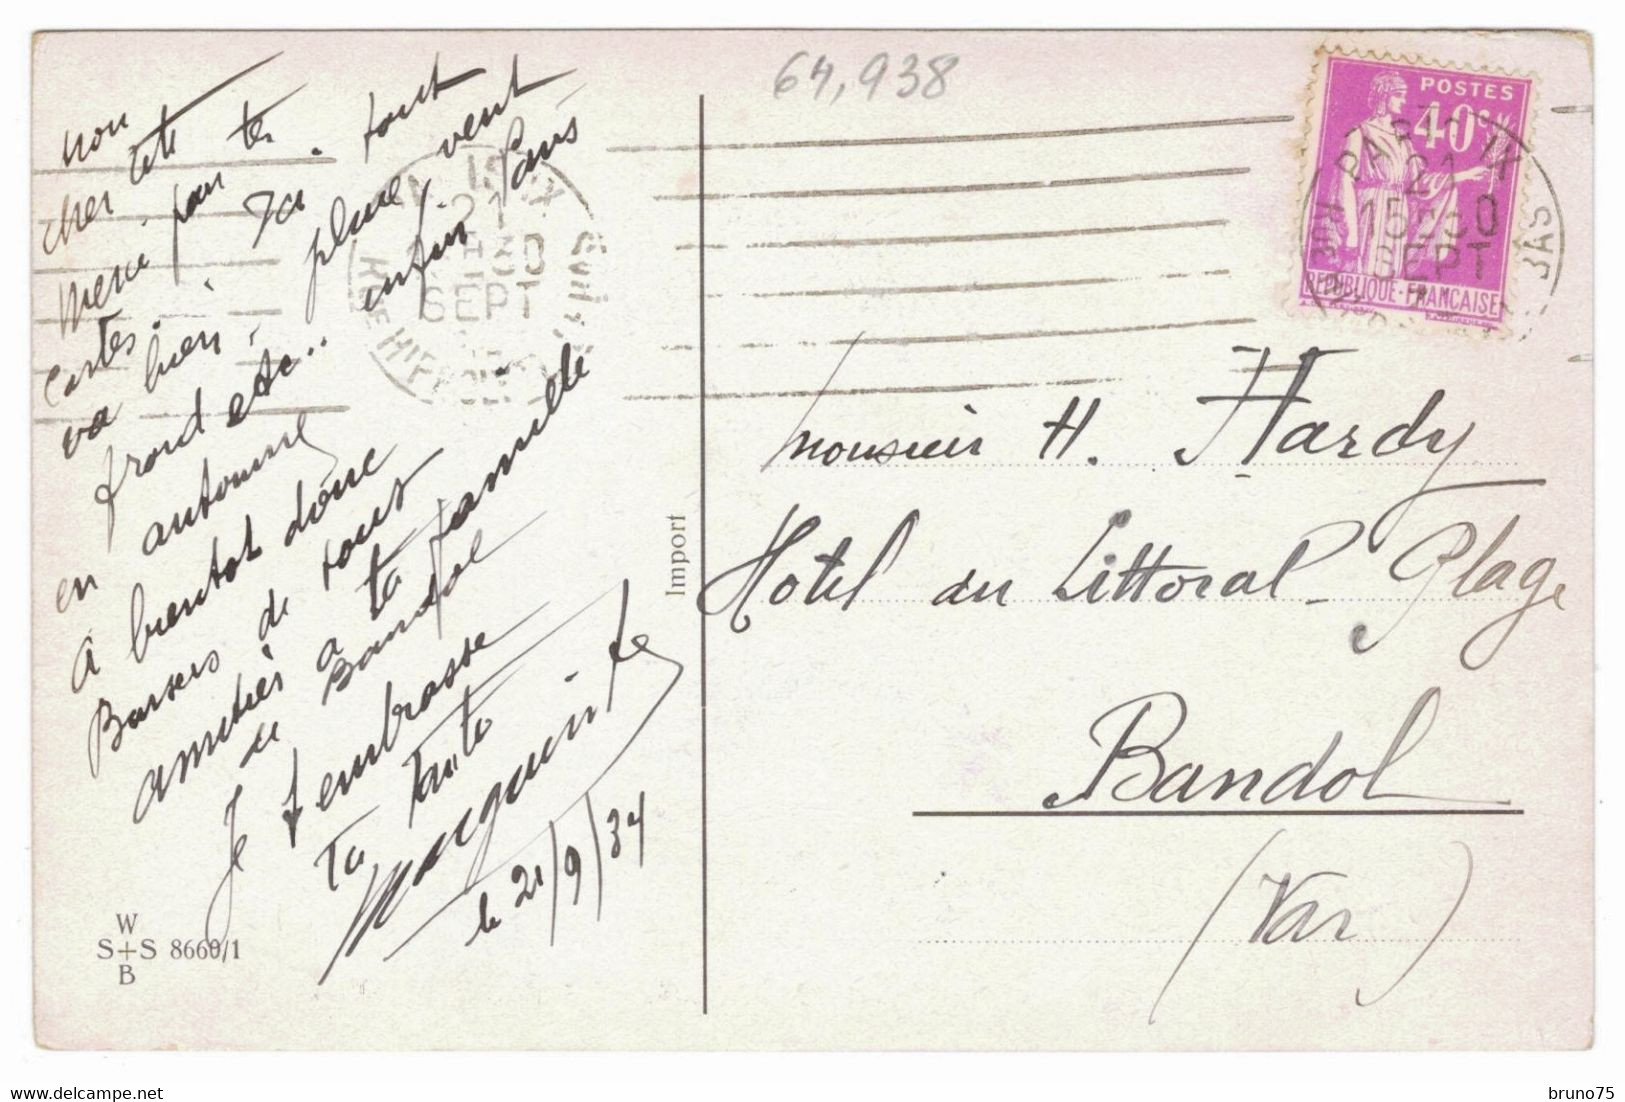 mon
cher
merci pour tes
cartes. Ici. tout
va bien, pluie, vent
froid etc.. enfin Paris
en automne
A bientot donc
Baisers de tous
amitiés a ta famille
de Bandol
Je t'embrasse
Ta Tante
Marguerite
le 21/9/34
W
S+S 8660/1
B
Import
64,938
POSTES
40c
REPUBLIQUE-FRANCAISE
PARIS IX
21
15H30
SEPT
monsieur H. Hardy
Hotel du Littoral - Plage
Bandol
(Var)
www.delcampe.net
bruno75